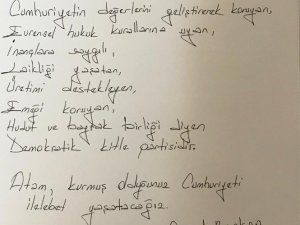 Cumhuriyetin değerlerini geliştirerek koruyan,
Evrensel hukuk kurallarına uyan,
İnançlara saygılı,
Laikliği yaşatan,
Üretimi destekleyen,
Emeği koruyan,
Hudut ve bayrak birliği diyen
Demokratik kitle partisidir.
Atam, kurmuş olduğunuz Cumhuriyeti
ilelebet yaşatacağız.